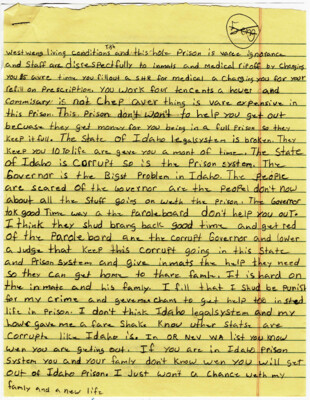 5 eng
west weng living condetions and this hole Prison is varee ignorance
and Staff are disrespectfully to inmats and medical ripoff by charging
you 15 avre time you fillout a SHR for medical a charging you for your
refill on Prescriptions. You work four tencents a hower and
commisary is not chep aver thing is vare expensive in
this Prison. This prison don't wont to help you get out
becwase they get money for you being in a full Prison so they
keep it full. The State of Idaho legal system is broken. They
keep you 10 to life are gave you a mont of time. The State
of Idaho is corrupt so is the Prison system. The
Governor is the Bigst Problem in Idaho. The PeoPle
are scared of the Governor are the peopel don't now
about all the Stuff going on weth the prison. The Governor
tok good Time way a the Paroleboard don't help you outo
I think they shud brang back good time and get red
of the Parole bord ane the corrupt Governor and lower
a Judge that keep this corrupt going in this State
and Prison system and give inmats the help they need
so they can get home to thare famle. It is hard on
the inmate and his famly. I fill that I shud be punish
for my crime and geve me chans to get help too insted
life in Prison. I don't think Idaho legal system and my
howe gave me a fare Shake Know uther States are
corrupt like Idaho is. In OR NEV WA list you know
wen you are gieting out. If you are in Idaho Prison
System you and your famly don't know wen you will get
out of Idaho Prison. I Just wont a chance weth my
famly and a new life